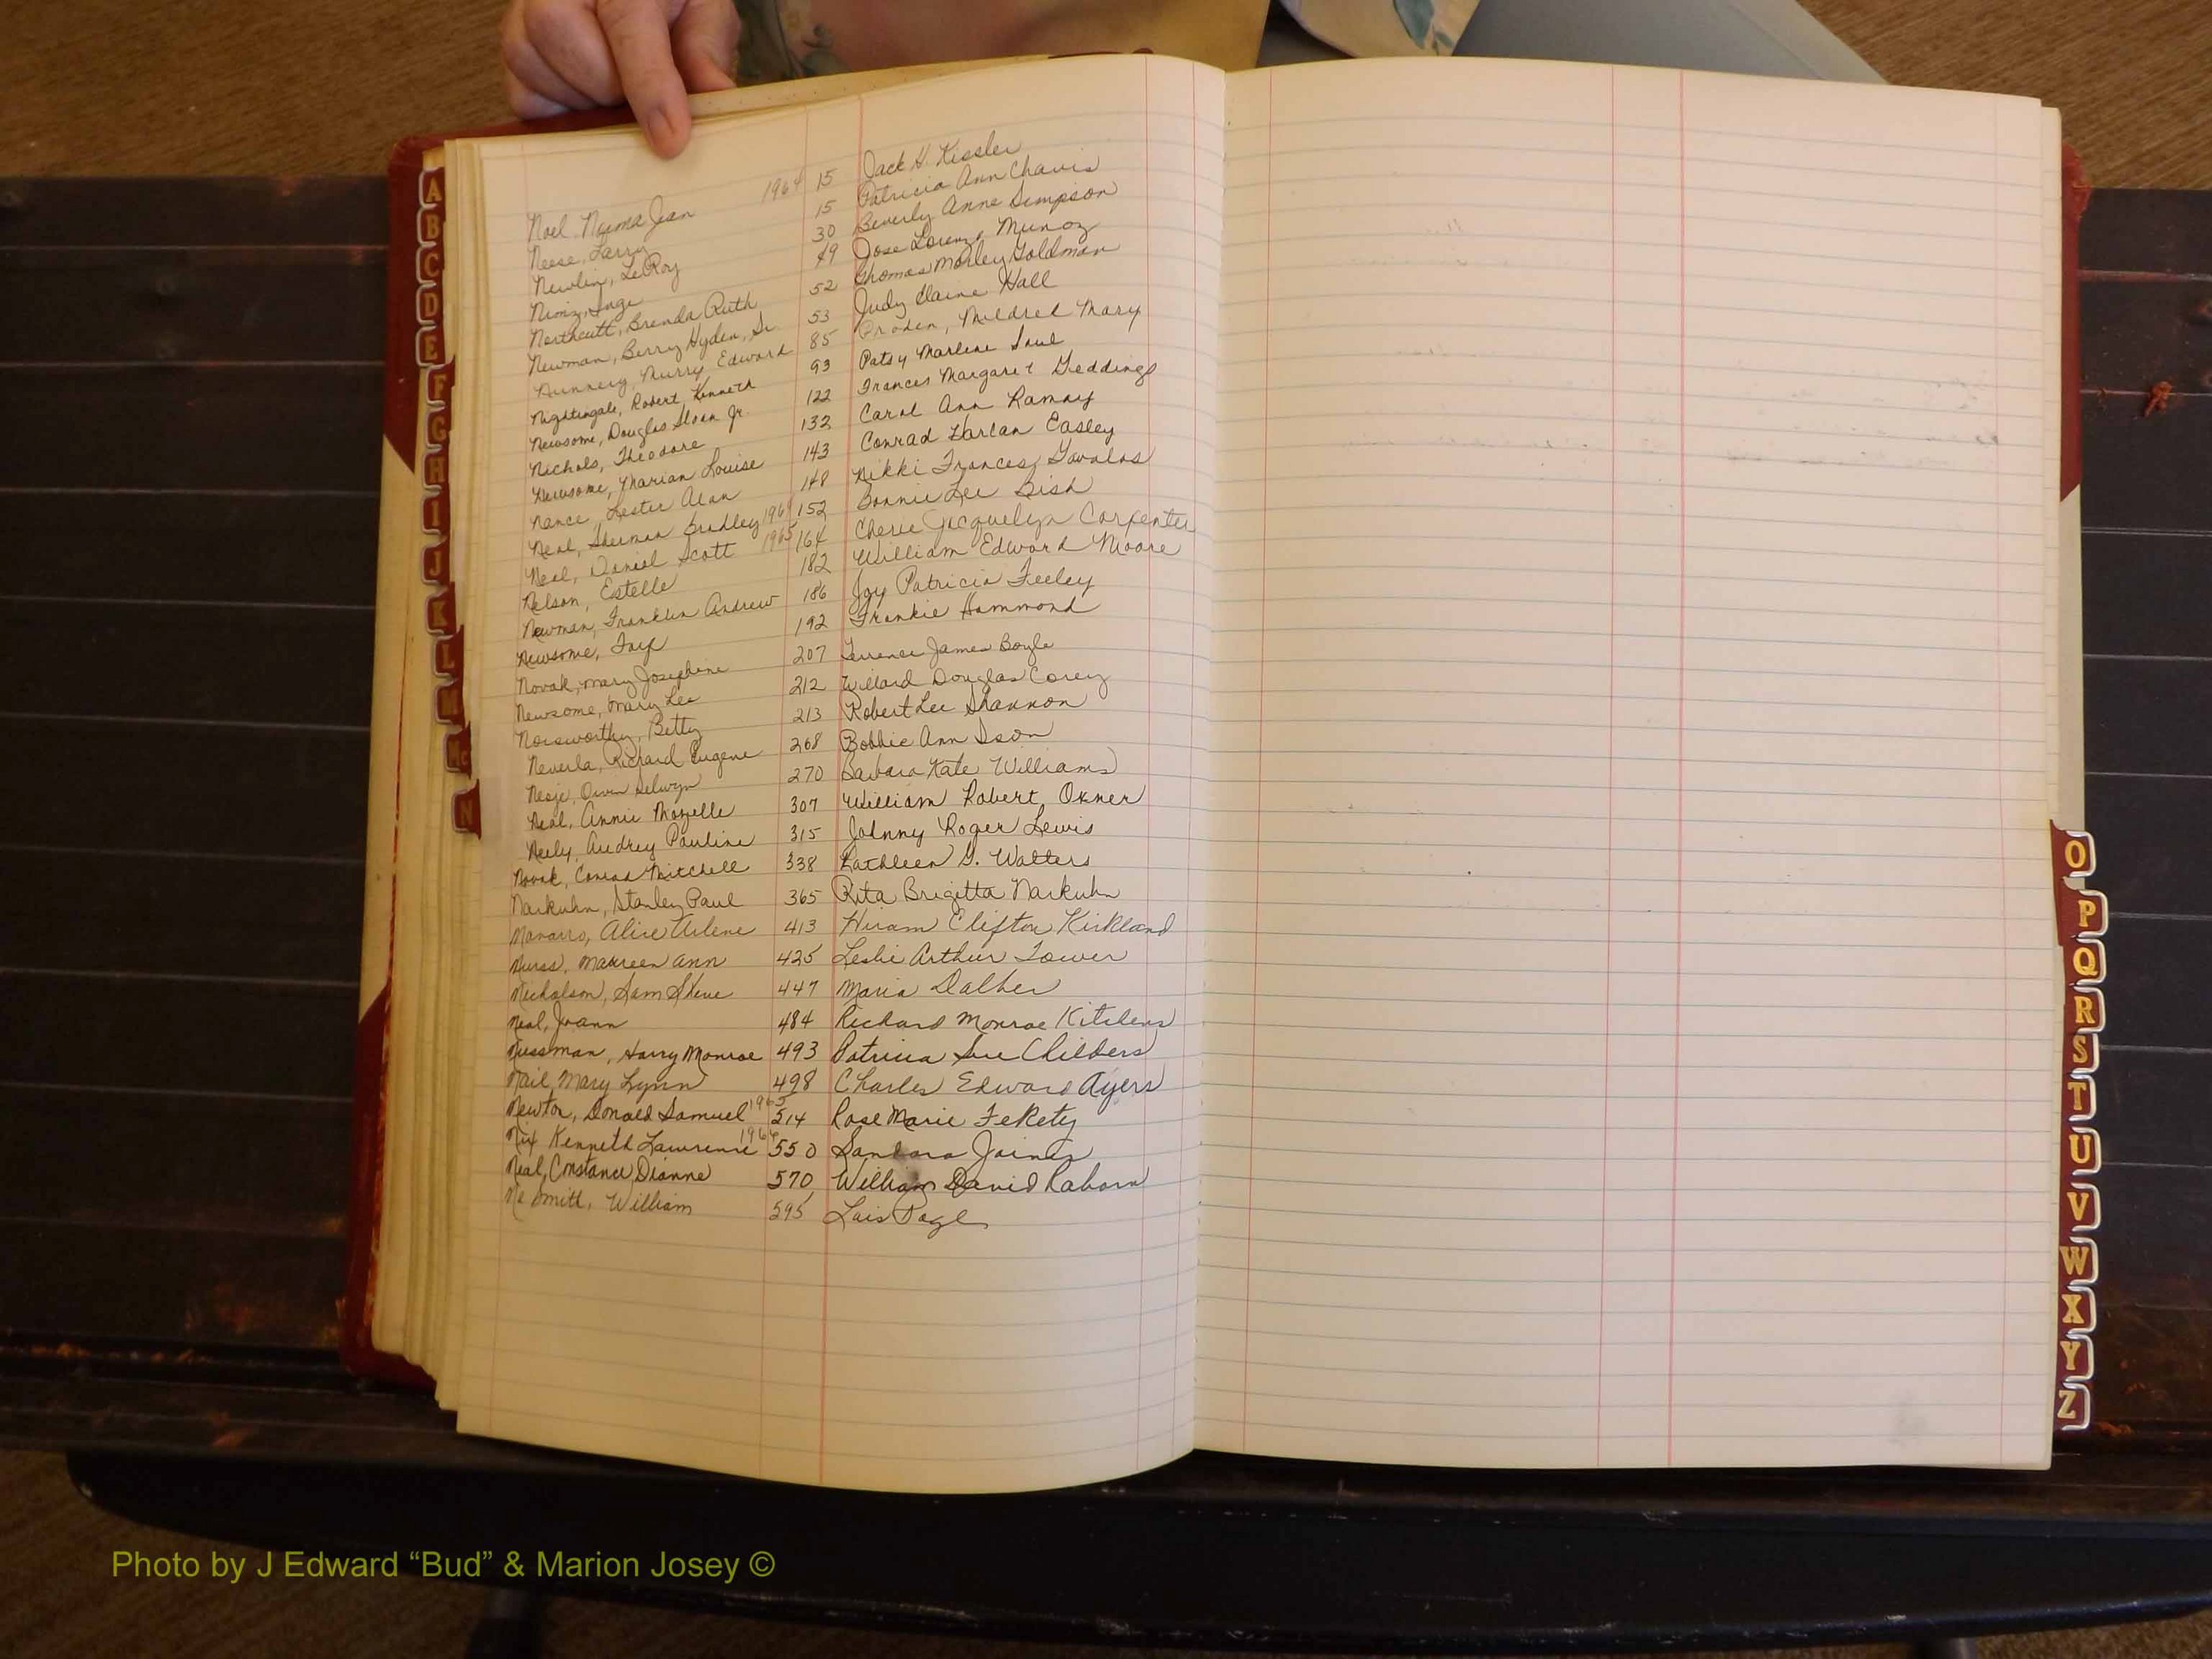 Noel, Norma Jean 1964 15 Jack H. Kissler
Neese, Larry 15 Patricia Ann Chavis
Newlin, LeRoy 30 Beverly Anne Simpson
Nimz, Inge 49 Jose Lorenzo Munoz
Northcutt, Brenda Ruth 52 Thomas Morley Goldman
Newman, Berry Hyden, Sr. 53 Judy Elaine Hall
Nunnery, Murry Edward 85 Proden, Mildred Mary
Nightingale, Robert Kenneth 93 Patsy Marlene Saul
Newsome, Douglas Sloan Jr. 122 Frances Margaret Geddings
Nichols, Theodore 132 Carol Ann Ramay
Newsome, Marian Louise 143 Conrad Harlan Easley
Nance, Lester Alan 148 Nikki Frances Gavalas
Neal, Sherman Bradley 1964 152 Bonnie Lee Bish
Neal, Daniel Scott 1965 164 Cherie Jacquelyn Carpenter
Nelson, Estelle 182 William Edward Moore
Newman, Franklin Andrew 186 Joy Patricia Feeley
Newsome, 192 Frankie Hammond
Novak, Mary Josephine 207 Terrence James Boyle
Newsome, Mary Lee 212 Willard Douglas Corey
Norsworthy, Betty 213 Robert Lee Shannon
Neverla, Richard Eugene 268 Bobbie Ann Ison
Nesje, Orvin Selwyn 270 Barbara Kate Williams
Neal, Annie Mozelle 307 William Robert Oxner
Neely, Audrey Pauline 315 Johnny Roger Lewis
Novak, Conrad Mitchell 338 Kathleen G. Walters
Narkuhn, Stanley Paul 365 Rita Brigitta Narkuhn
Navarro, Alice Arlene 413 Hiram Clifton Kirkland
Nurss, Maureen Ann 425 Leslie Arthur Tower
Nicholson, Sam Steve 447 Maria Dalber
Neal, Joann 484 Richard Monroe Kitchens
Nussman, Harry Monroe 493 Patricia Sue Childers
Nail, Mary Lynn 498 Charles Edward Ayers
Newton, Donald Samuel 1965 514 Rose Marie FeKety
Nix Kenneth Lawrence 1966 550 Sandara Joines
Neal, Constance Dianne 570 William David Raborn
Ne Smith, William 595 Lois Page
A
B
C
D
E
F
G
H
I
J
K
L
M
Mc
N
O
P
Q
R
S
T
U
V
W
X
Y
Z
Photo by J Edward “Bud” & Marion Josey ©